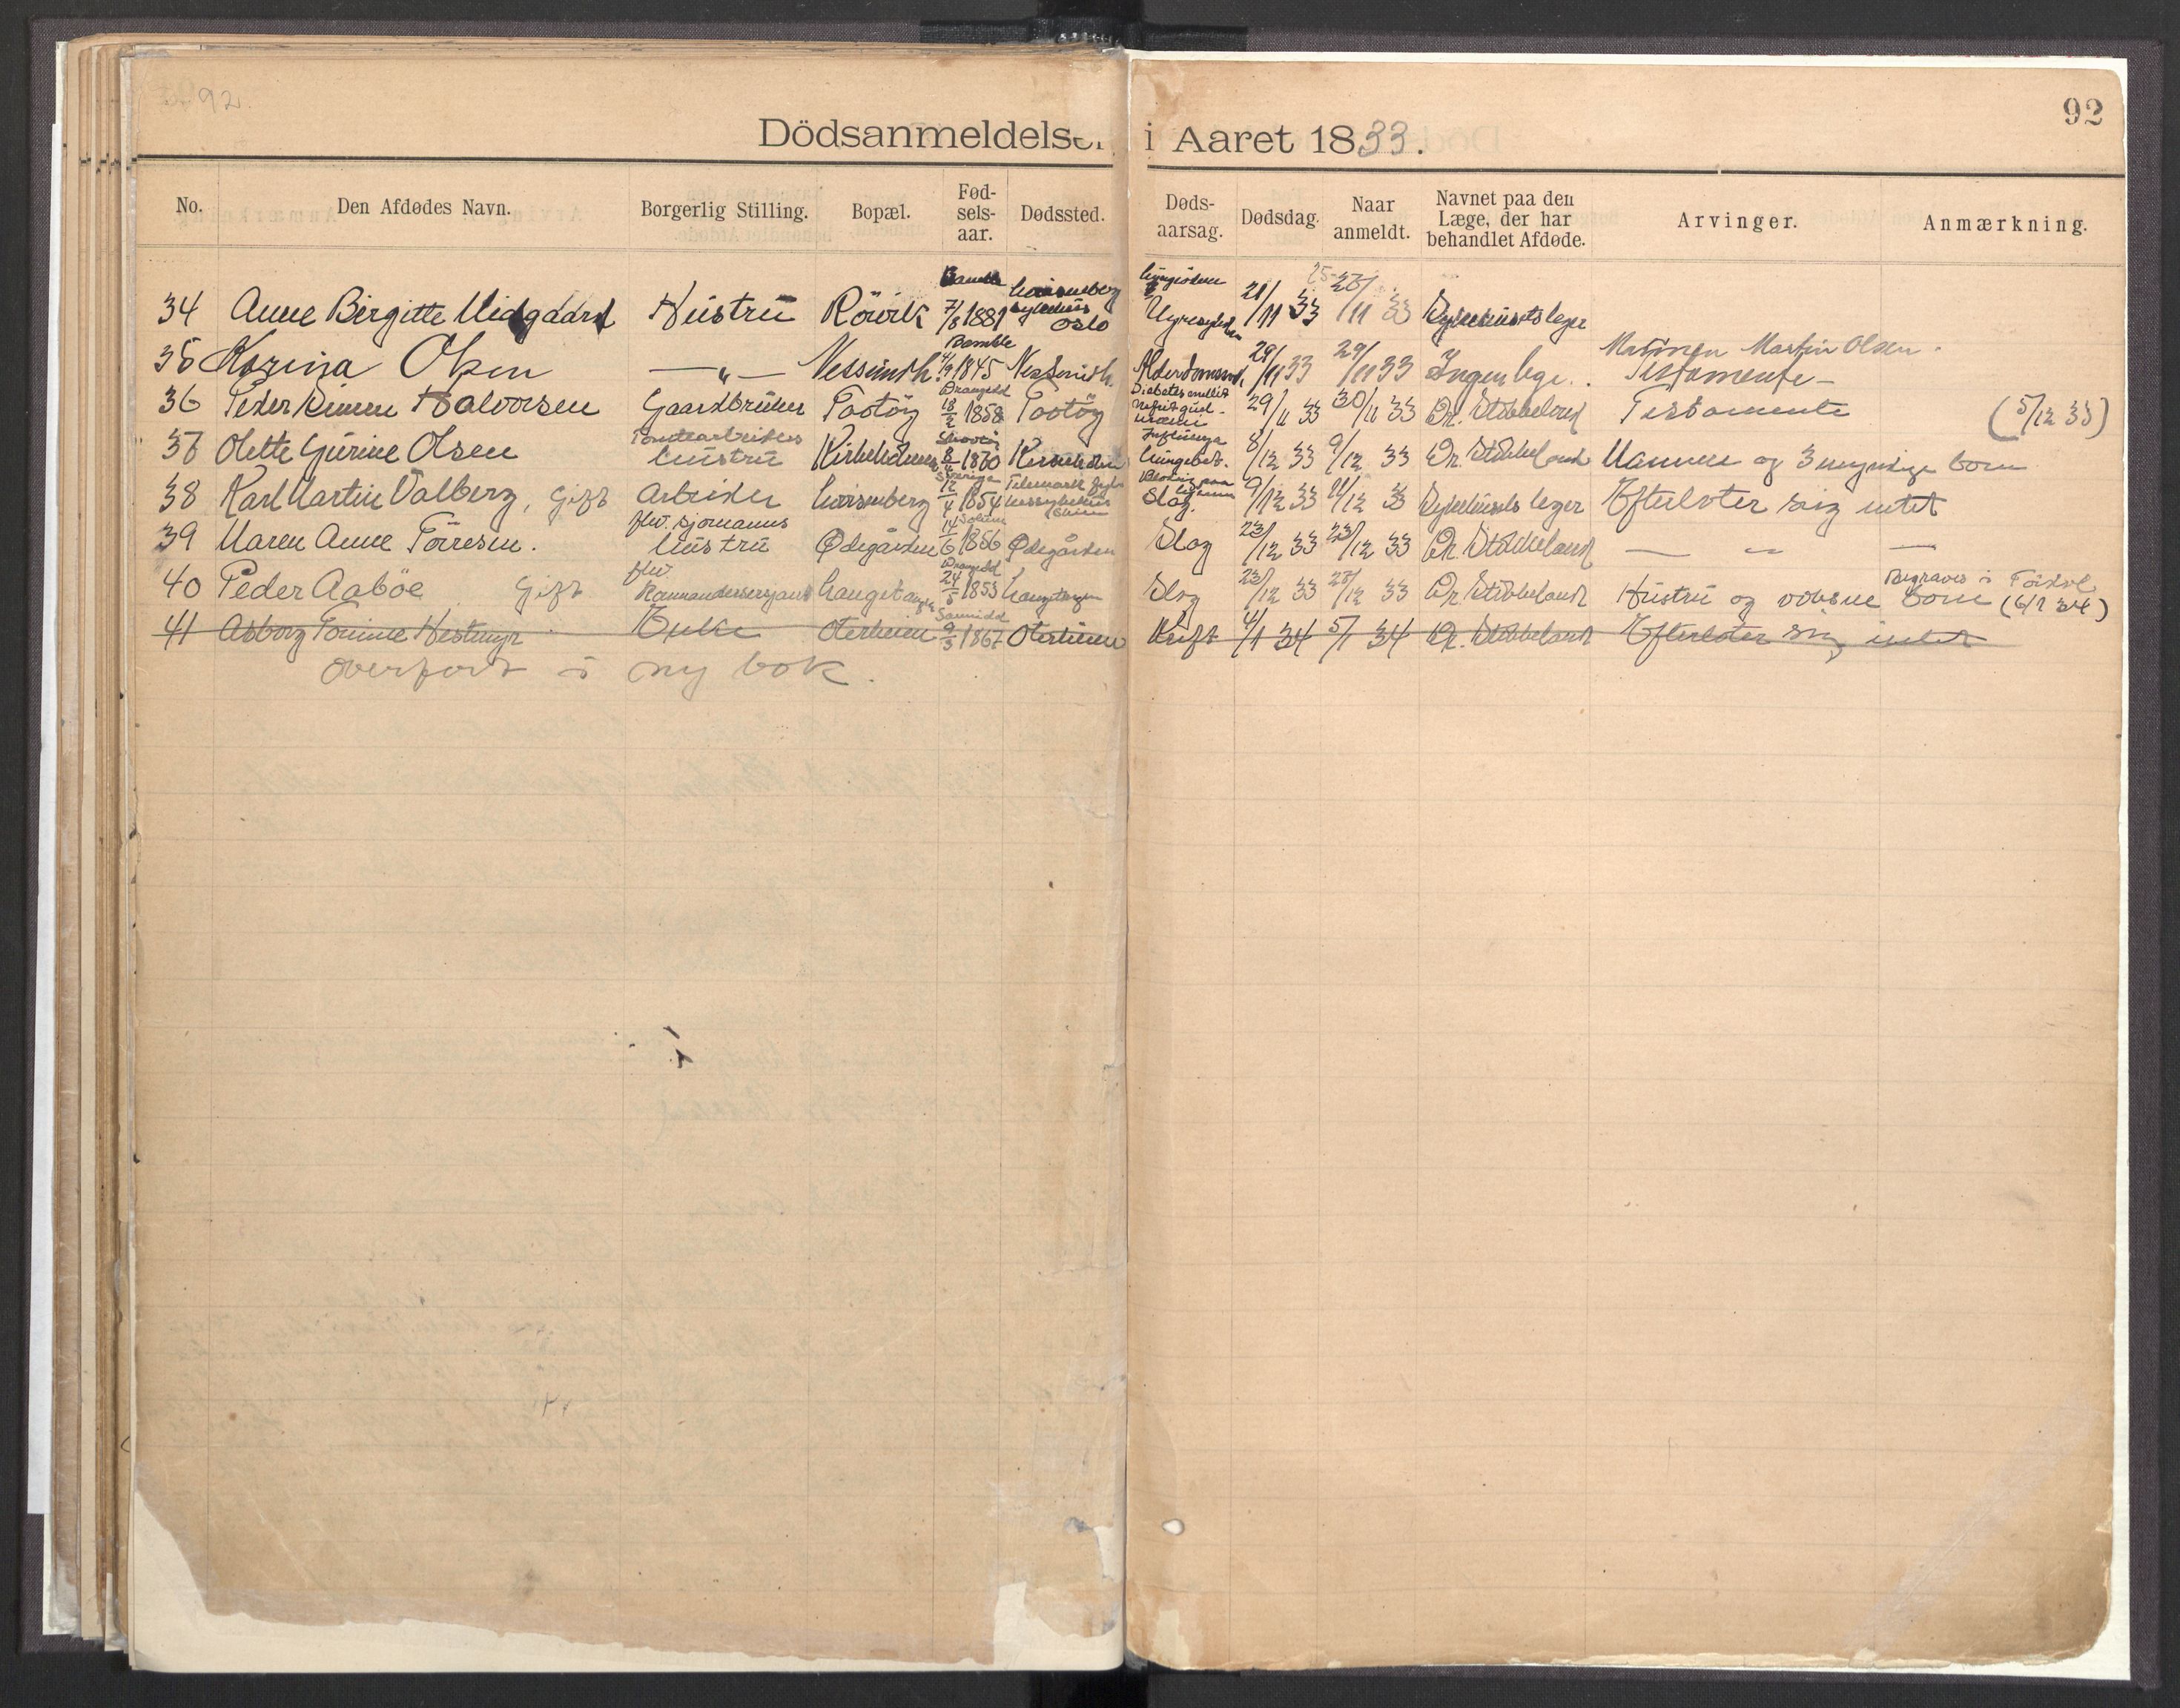 92.
92
Dödsanmeldelser i Aaret 1833.
No. Den Afdødes Navn. Borgerlig Stilling. Bopæl. Fød-sels-aar. Dødssted. Døds-aarsag. Dødsdag. Naar anmeldt. Navnet paa den Læge, der har behandlet Afdøde. Arvinger. Anmærkning.
34 Anne Birgitte Midgaard Hustru Rörvik Bamble 7/8 1881 sykehus Oslo 21/11 33 25 28/11 33 Sykehusets leger
35 Karina Olsen —"— Bamble 4/9 1845 29/11 33 29/11 33 Ingen lege. Mannen Martin Olsen. Testamente —
36 Peder Halvorsen Gaardbruker Tootöy Drangedal 18/2 1858 Tootöy Diabetes mellit 29/11 33 30/11 33 Dr. Stökkeland Testamente (5/12 33)
37 Olette Gurine Olsen hustru 1870 Influenza lungebet. 8/12 33 9/12 33 Dr. Stökkeland Mannen og 3 myndige born
38 Karl Martin Valberg, gift Arbeider Sverige 12/4 1854 Telemark Skien Slag. 9/12 33 11/12 33 Sykehusets leger Efterlater sig intet
39 Maren Anne Törresen. fhv. sjømanns hustru Ødegården 14/6 1856 Ødegården Slag 23/12 33 23/12 33 Dr. Stökkeland — — —
40 Peder Aaböe gift fhv Langetangen Drangedal 24/5 1853 Langetangen Slag 23/12 33 28/12 33 Dr. Stökkeland Hustru og voksne born Begraves i (6/1 34)
41 Asborg Tomine Hestmyr Enke Sannidal 9/3 1867 Kreft 4/1 34 5/1 34 Dr. Stökkeland Efterlater sig intet
overfort i ny bok.